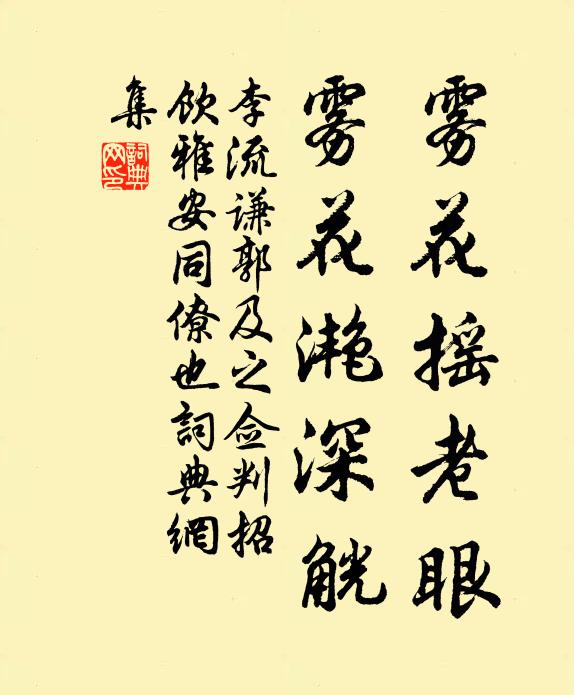 雾花摇老眼
雾花滟深觥
李流谦郭及之佥判招
饮雅安同僚也詞典網
集
詞典
网印